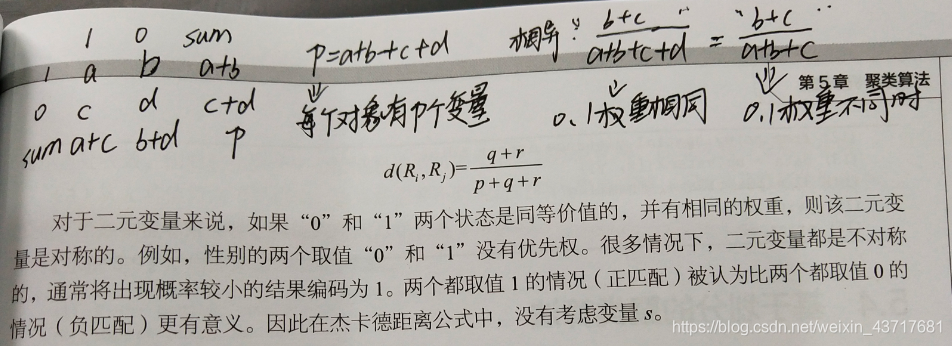 1 0 sum
1 a b a+b
0 c d c+d
sum a+c b+d p
p=a+b+c+d
每个对象有p个变量
相异: "b+c / a+b+c+d" = "b+c / a+b+c"
0.1权重相同
0.1权重不同时
第5章 聚类算法
d(R_i,R_j)= q+r / p+q+r
对于二元变量来说，如果“0”和“1”两个状态是同等价值的，并有相同的权重，则该二元变
量是对称的。例如，性别的两个取值“0”和“1”没有优先权。很多情况下，二元变量都是不对称
的，通常将出现概率较小的结果编码为 1。两个都取值 1 的情况（正匹配）被认为比两个都取值 0 的
情况（负匹配）更有意义。因此在杰卡德距离公式中，没有考虑变量 s。
https://blog.csdn.net/weixin_43717681